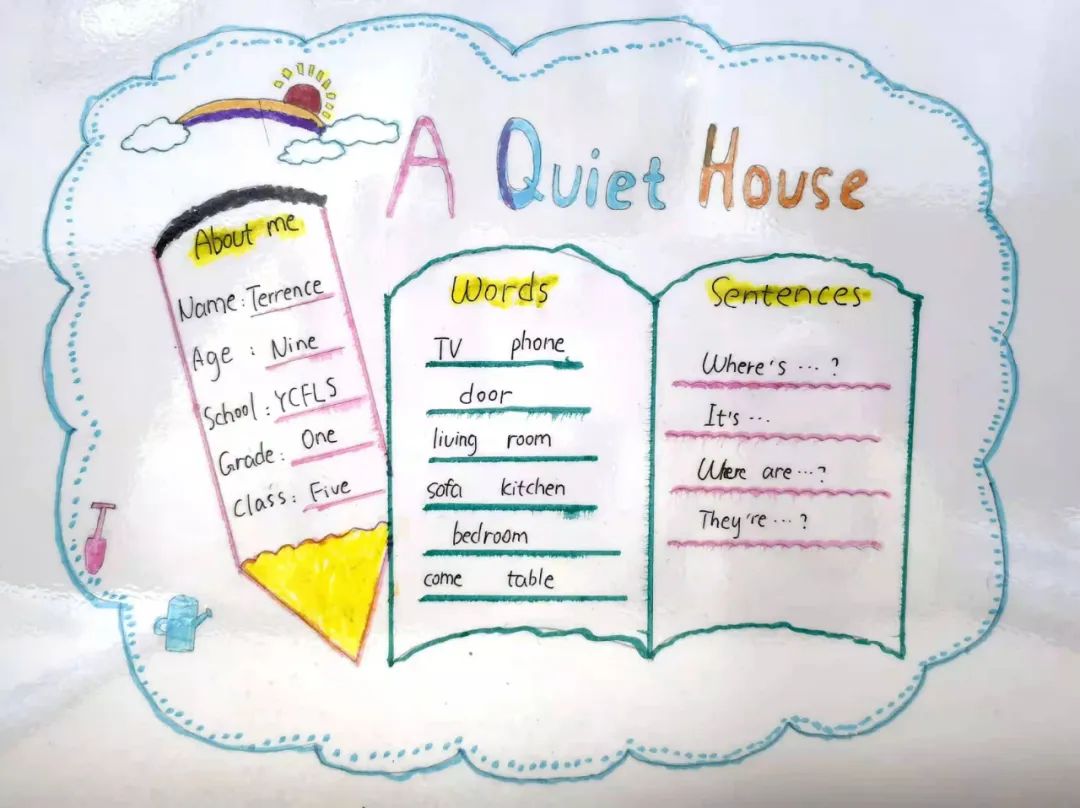 A Quiet House
About me
Name: Terrence
Age : Nine
School: YCFLS
Grade: One
Class: Five
Words
TV phone
door
living room
sofa kitchen
bedroom
come table
Sentences
Where's ... ?
It's ...
Where are ...?
They're ... ?